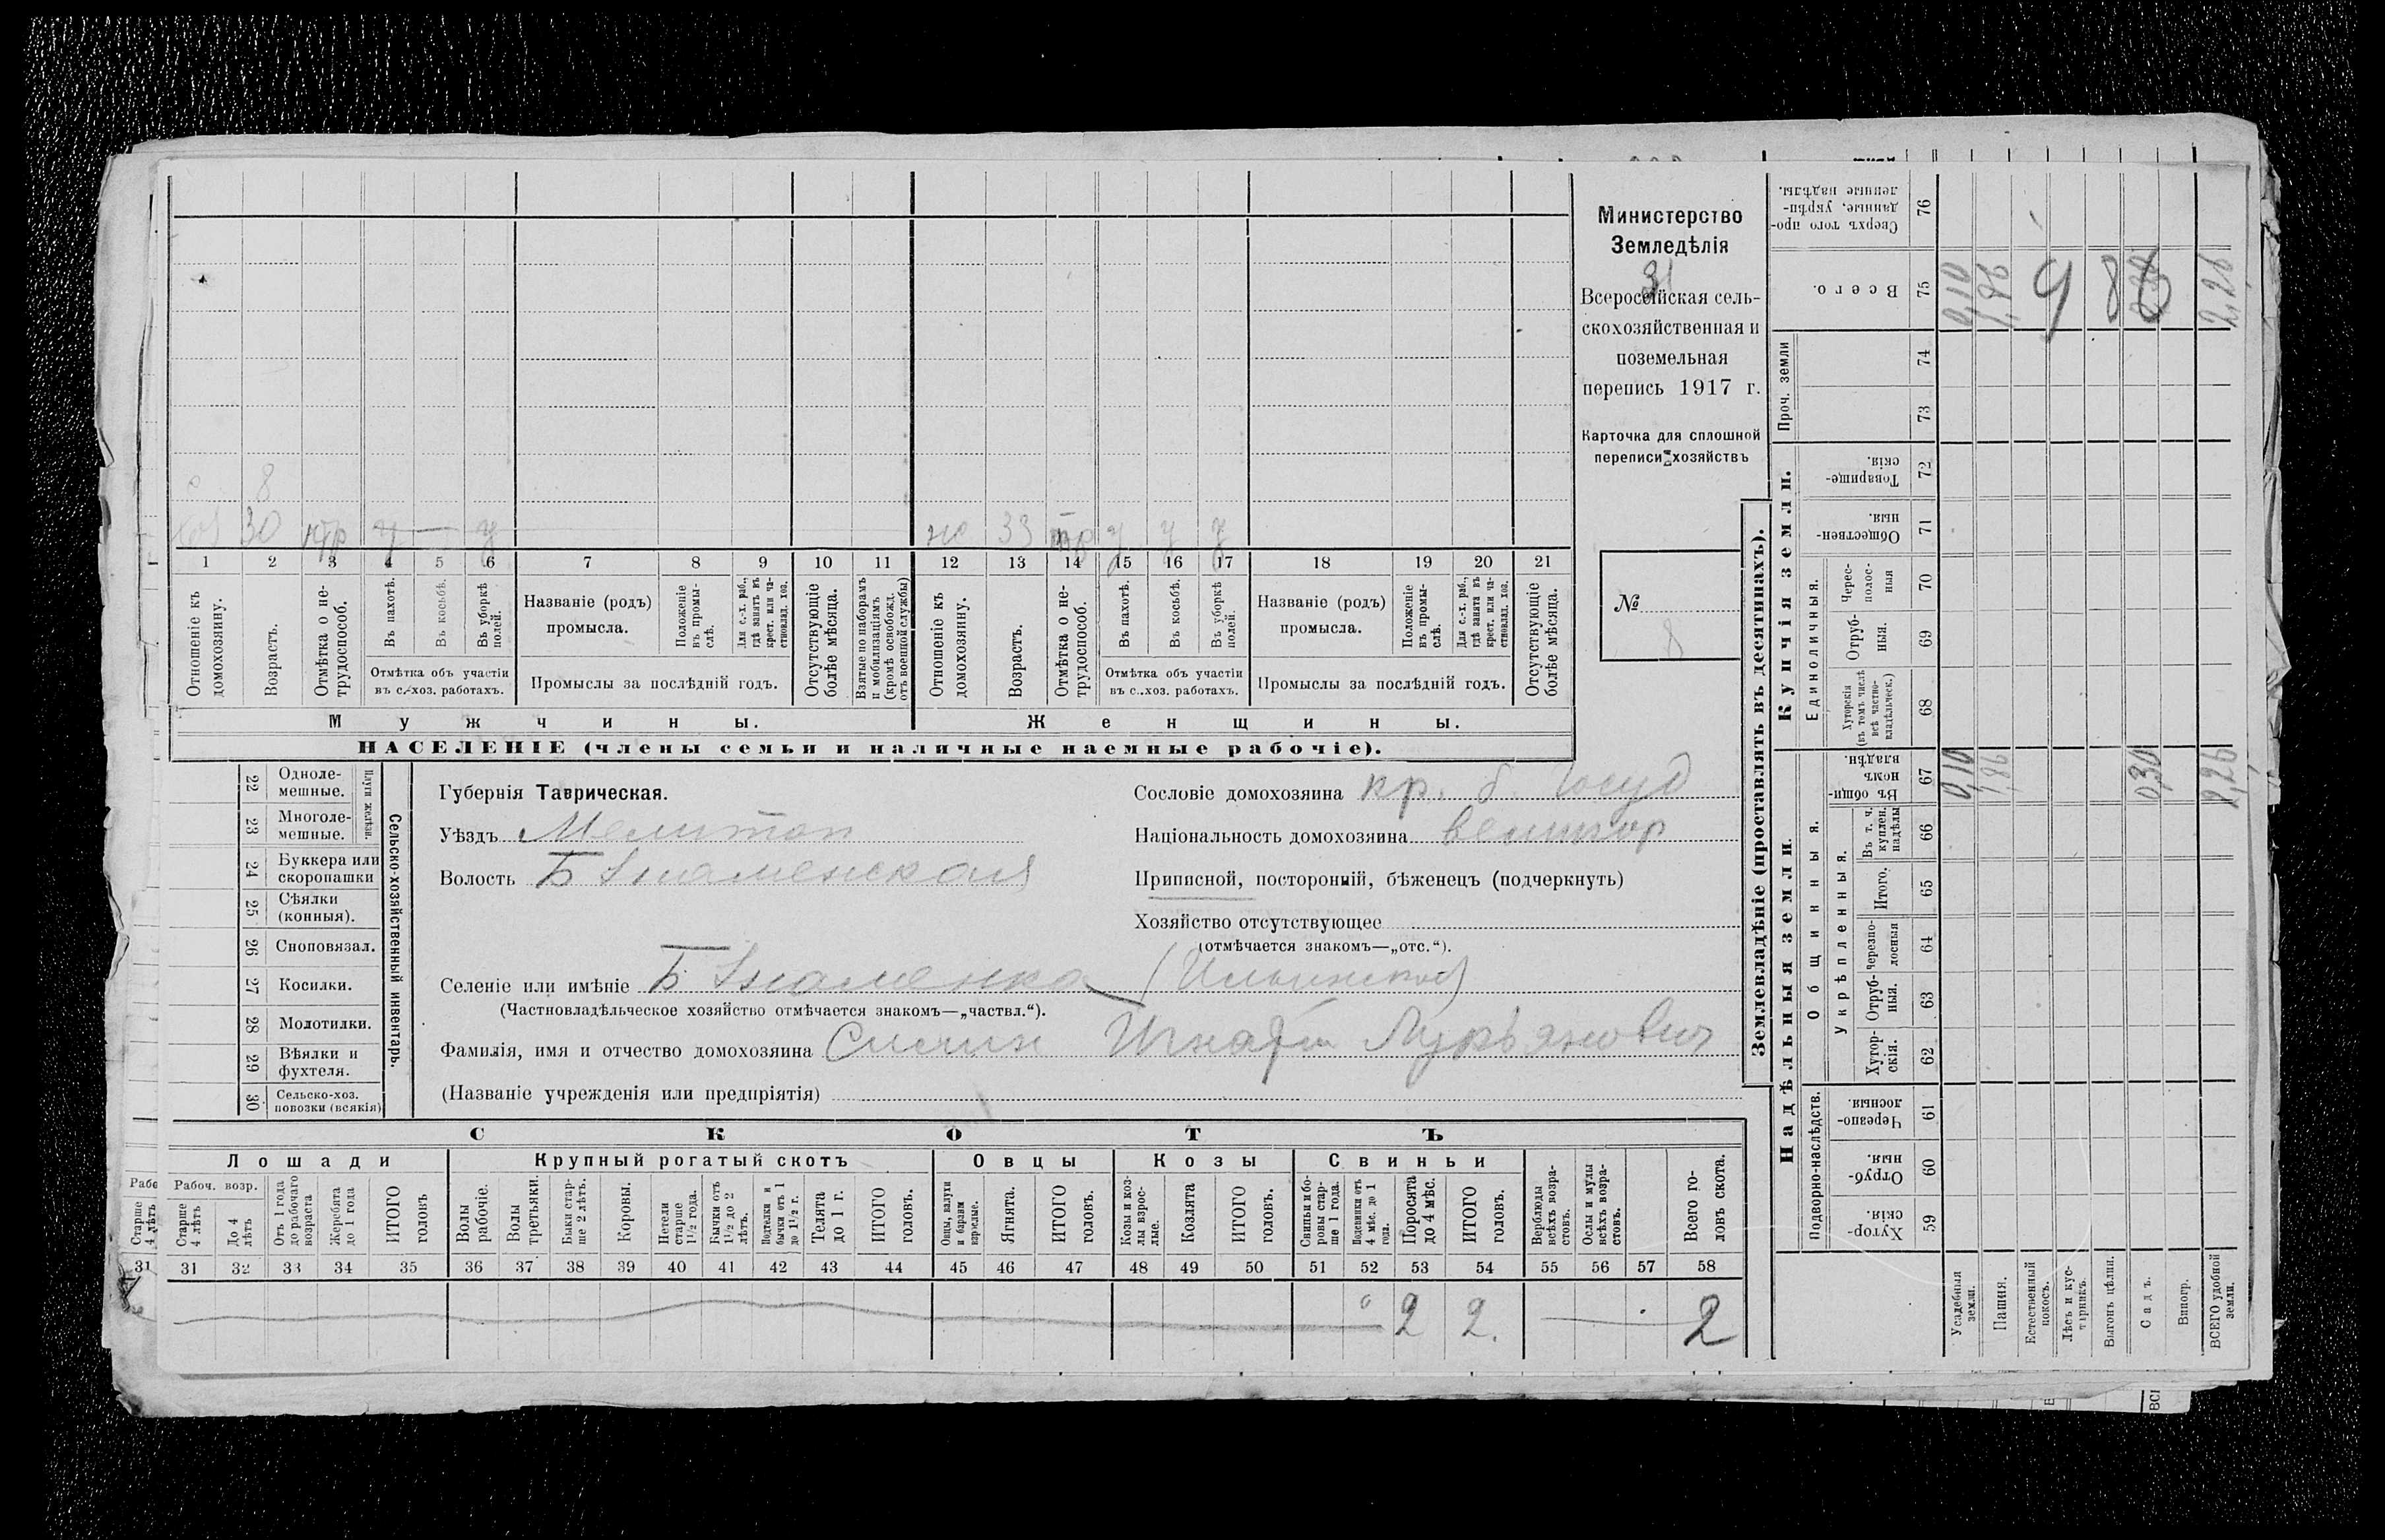 Министерство
Земледѣлія
31
Всероссійская сель-
скохозяйственная и
поземельная
перепись 1917 г.
Карточка для сплошной
переписи хозяйствъ
№
8
с 8
30 нтр у — у
33 тр у у у
1 2 3 4 5 6 7 8 9 10 11 12 13 14 15 16 17 18 19 20 21
Отношеніе къ домохозяину.
Возрастъ.
Отмѣтка о не-трудоспособ.
Въ пахотѣ.
Въ косьбѣ.
Въ уборкѣ полей.
Отмѣтка объ участіи
въ с.-хоз. работахъ.
Названіе (родъ)
промысла.
Положеніе въ промы-слѣ.
Для с.-х. раб., гдѣ занятъ въ крест. или ча-стновлад. хоз.
Промыслы за послѣдній годъ.
Отсутствующіе болѣе мѣсяца.
Взятые по наборамъ и мобилизаціямъ (кромѣ освобожд. отъ военной службы)
Отношеніе къ домохозяину.
Возрастъ.
Отмѣтка о не-трудоспособ.
Въ пахотѣ.
Въ косьбѣ.
Въ уборкѣ полей.
Отмѣтка объ участіи
въ с.-хоз. работахъ.
Названіе (родъ)
промысла.
Положеніе въ промы-слѣ.
Для с.-х. раб., гдѣ занята въ крест. или ча-стновлад. хоз.
Промыслы за послѣдній годъ.
Отсутствующіе болѣе мѣсяца.
Мужчины.
Женщины.
НАСЕЛЕНІЕ (члены семьи и наличные наемные рабочіе).
Сельско-хозяйственный инвентарь.
Плуги желѣзн.
22 Одноле-мешные.
23 Многоле-мешные.
24 Буккера или скоропашки
25 Сѣялки (конныя).
26 Сноповязал.
27 Косилки.
28 Молотилки.
29 Вѣялки и фухтеля.
30 Сельско-хоз. повозки (всякія)
Губернія Таврическая.
Уѣздъ Мелитоп
Волость Б Знаменская
Сословіе домохозяина кр. б. Госуд
Національность домохозяина великор
Приписной, посторонній, бѣженецъ (подчеркнуть)
Хозяйство отсутствующее
(отмѣчается знакомъ—„отс.“).
Селеніе или имѣніе Б Знаменка
(Частновладѣльческое хозяйство отмѣчается знакомъ—„частвл.“).
Фамилія, имя и отчество домохозяина Игнатъ
(Названіе учрежденія или предпріятія)
СКОТЪ
Лошади
Крупный рогатый скотъ
Овцы
Козы
Свиньи
Рабоч. возр.
Старше 4 лѣтъ
До 4 лѣтъ
Отъ 1 года до рабочаго возраста
Жеребята до 1 года
ИТОГО головъ
Волы рабочіе.
Волы третьяки.
Быки стар-ше 2 лѣтъ.
Коровы.
Нетели старше 1½ года.
Бычки отъ 1½ до 2 лѣтъ.
Подтелки и бычки отъ 1 до 1½ г.
Телята до 1 г.
ИТОГО головъ.
Овцы, валухи и бараны взрослые.
Ягнята.
ИТОГО головъ.
Козы и коз-лы взрос-лые.
Козлята
ИТОГО головъ.
Свиньи и бо-ровы стар-ше 1 года.
Подсвинки отъ 4 мѣс. до 1 года.
Поросята до 4 мѣс.
ИТОГО головъ.
Верблюды всѣхъ возра-стовъ.
Ослы и мулы всѣхъ возра-стовъ.
Всего го-ловъ скота.
31 31 32 33 34 35 36 37 38 39 40 41 42 43 44 45 46 47 48 49 50 51 52 53 54 55 56 57 58
2 2. 2
Землевладѣніе (проставлять въ десятинахъ).
Купчія земли.
Проч. земли
Единоличныя.
Надѣльныя земли.
Общинныя.
Укрѣпленныя.
Подворно-наслѣдств.
76 Сверхъ того про-данные, укрѣп-ленные надѣлы.
75 Всего.
74
73
72 Товарище-скія.
71 Обществен-ныя.
70 Черес-полос-ныя
69 Отруб-ныя.
68 Хуторскія (въ томъ числѣ всѣ частно-владѣльческ.)
67 Въ общи-номъ владѣн.
66 Въ т. ч. куплен. надѣлы
65 Итого.
64 Черезпо-лосныя
63 Отруб-ныя.
62 Хутор-скія.
61 Черезпо-лосныя.
60 Отруб-ныя.
59 Хутор-скія.
Усадебная земли.
Пашня.
Естественный покосъ.
Лѣсъ и кус-тарникъ.
Выгонъ цѣлин.
Садъ.
Виногр.
ВСЕГО удобной земли.
0,10 1,86 2,26
0,10 1,86 0,30 2,26